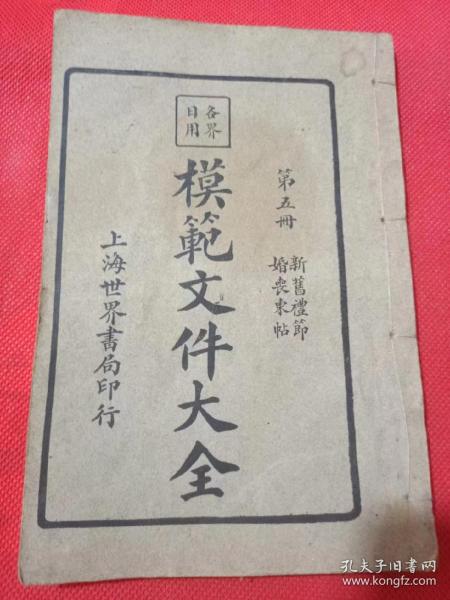 各界
日用
模範文件大全
第五冊
新舊禮節
婚喪柬帖
上海世界書局印行
孔夫子旧书网
www.kongfz.com